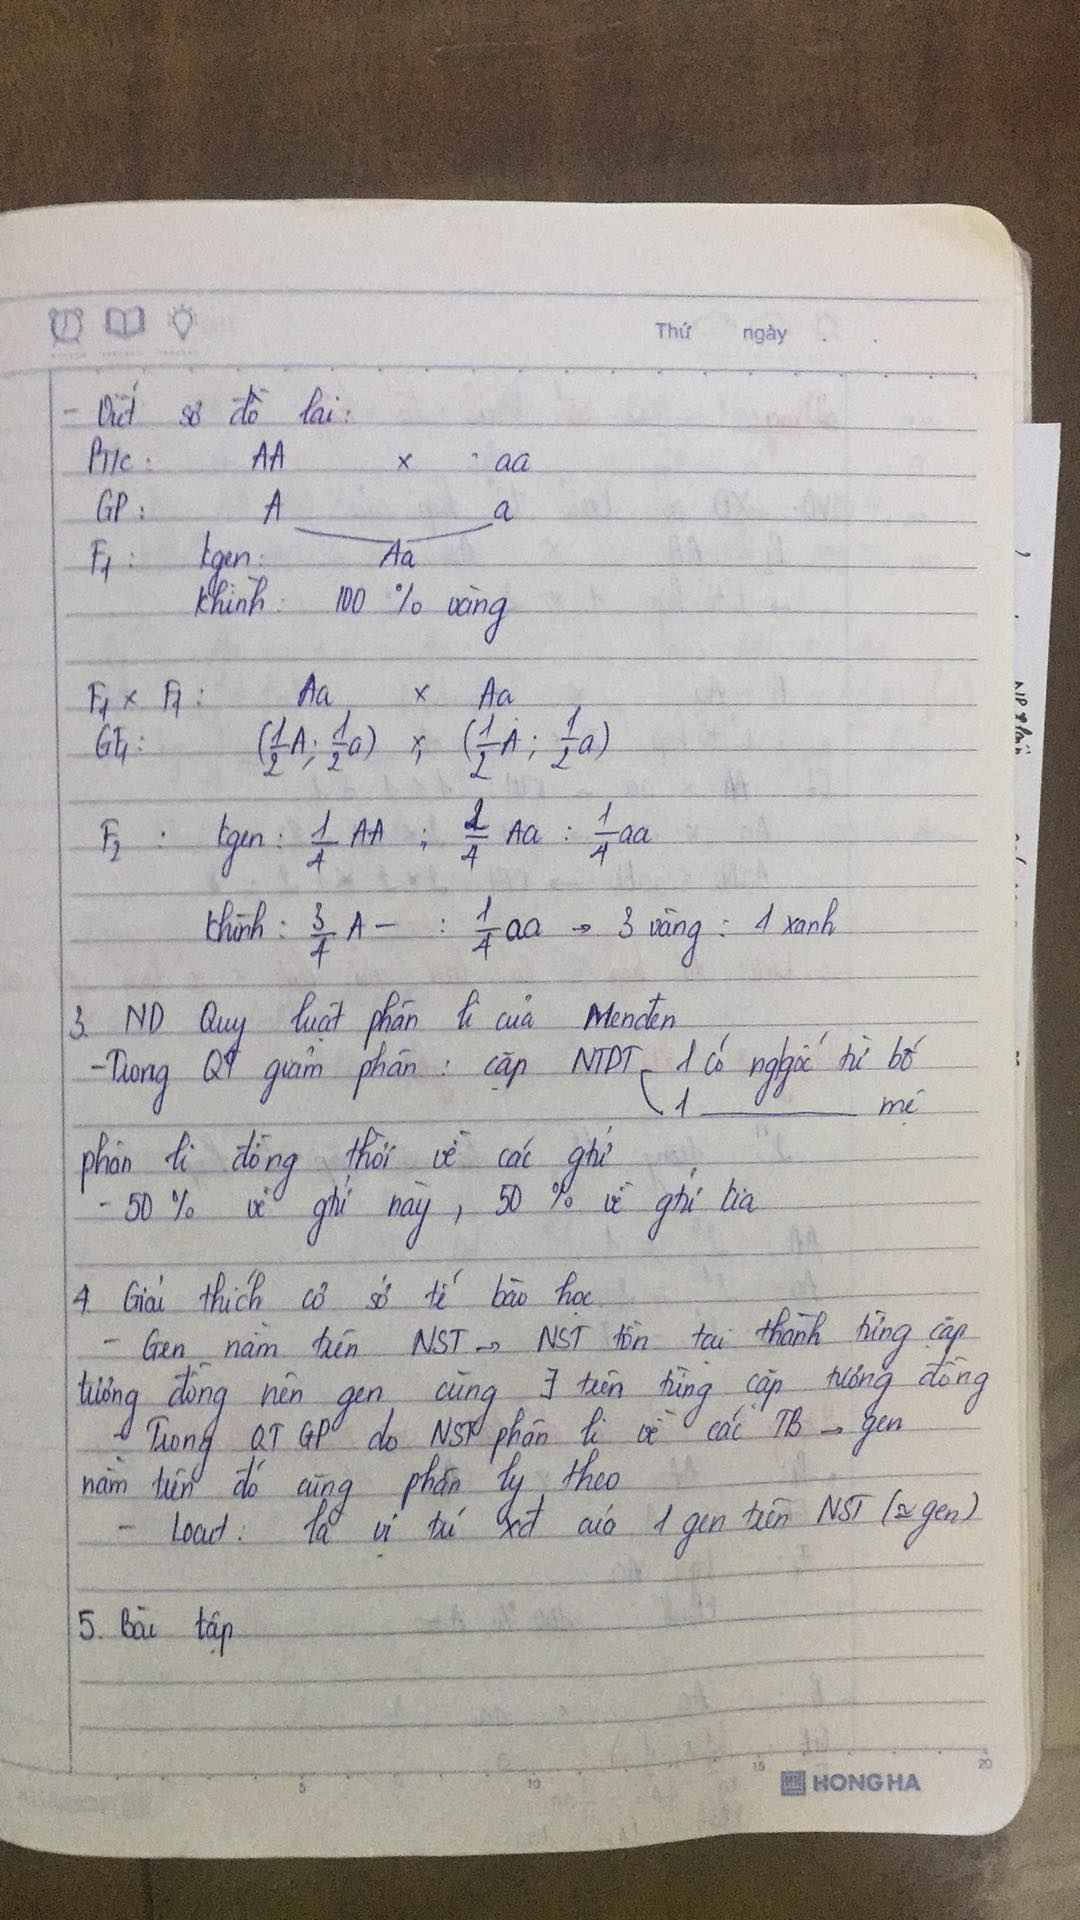 Thứ ngày
- Viết sơ đồ lai:
Pt/c: AA x aa
GP: A a
F1: kgen: Aa
khình: 100 % vàng
F1 x F1: Aa x Aa
GF1: (1/2A; 1/2a) x (1/2A; 1/2a)
F2: kgen: 1/4 AA ; 2/4 Aa : 1/4 aa
khình: 3/4 A- : 1/4 aa → 3 vàng : 1 xanh
3. ND Quy luật phân li của Menđen
- Trong QT giảm phân: cặp NTDT 1 có nggốc từ bố
1 ——— mẹ
phân li đồng thời về các ghtử
- 50% về ght này, 50% về ght kia
4. Giải thích cơ sở tế bào học
- Gen nằm trên NST → NST tồn tại thành từng cặp
tương đồng nên gen cũng ∃ trên từng cặp tương đồng
- Trong QT GP do NST phân li về các TB → gen
nằm trên đó cũng phân ly theo
- Locut: là vị trí xđ của 1 gen trên NST (≈ gen)
5. Bài tập
5 10 15 20
HONG HA